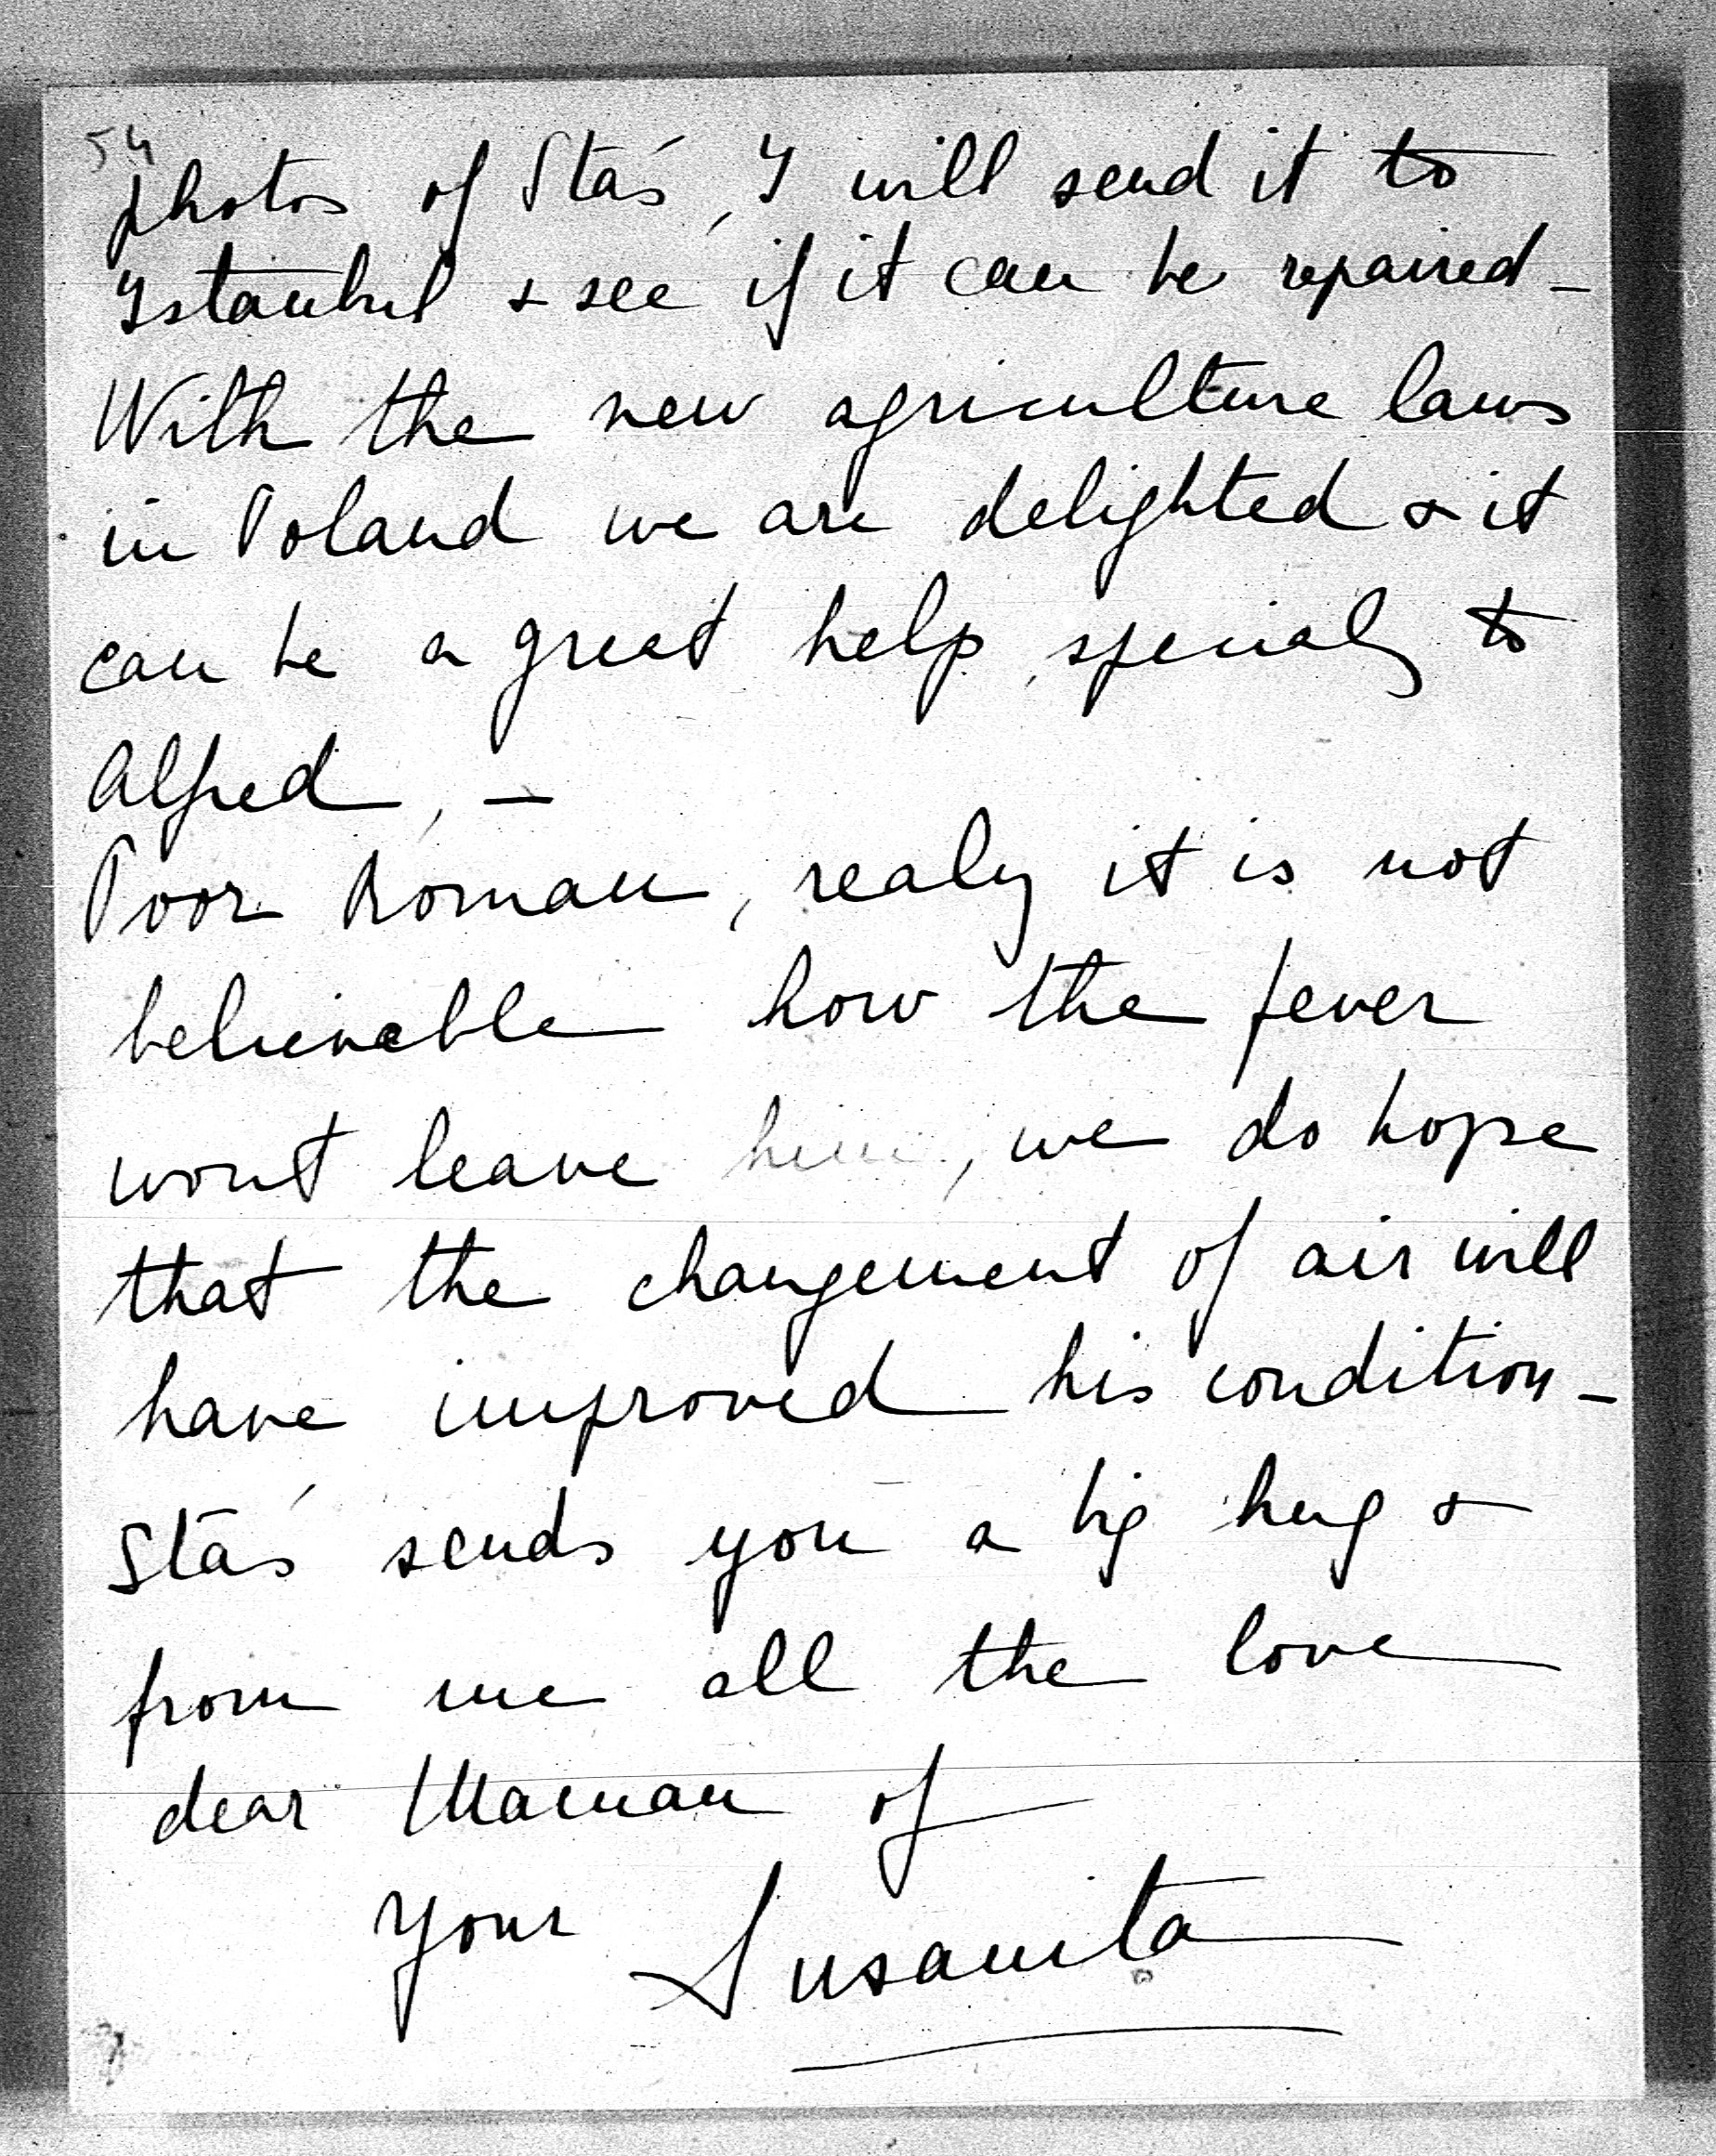 54
photos of Staś, I will send it to
Istanbul & see if it can be repaired -
With the new agriculture laws
in Poland we are delighted & it
can be a great help, specialy to
Alfred, -
Poor Roman, realy it is not
believable how the fever
wont leave him, we do hope
that the changement of air will
have improved his condition -
Staś sends you a big hug &
from me all the love
dear Maman of
Your Susanita